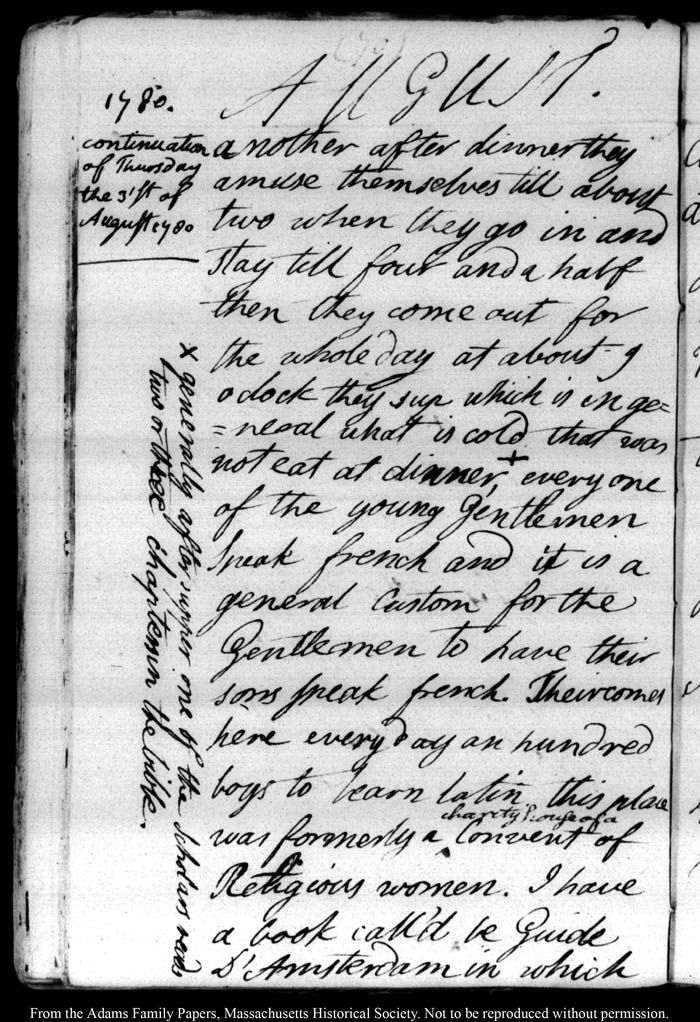 1780.
AUGUST.
continuation
of Thursday
the 31st of
August 1780
another after dinner they
amuse themselves till about
two when they go in and
stay till four and a half
then they come out for
the whole day at about 9
oclock they sup which is in ge=
=neral what is cold that was
not eat at dinner,+ every one
of the young Gentlemen
speak french and it is a
general custom for the
Gentlemen to have their
sons speak french. Their comes
here every day an hundred
boys to learn latin this place
charity house of a
was formerly a Convent of
Religious women. I have
a book call'd le Guide
D'Amsterdam in which
x generally after supper one of the Scholars reads
two or three chapters in the bible.
From the Adams Family Papers, Massachusetts Historical Society. Not to be reproduced without permission.